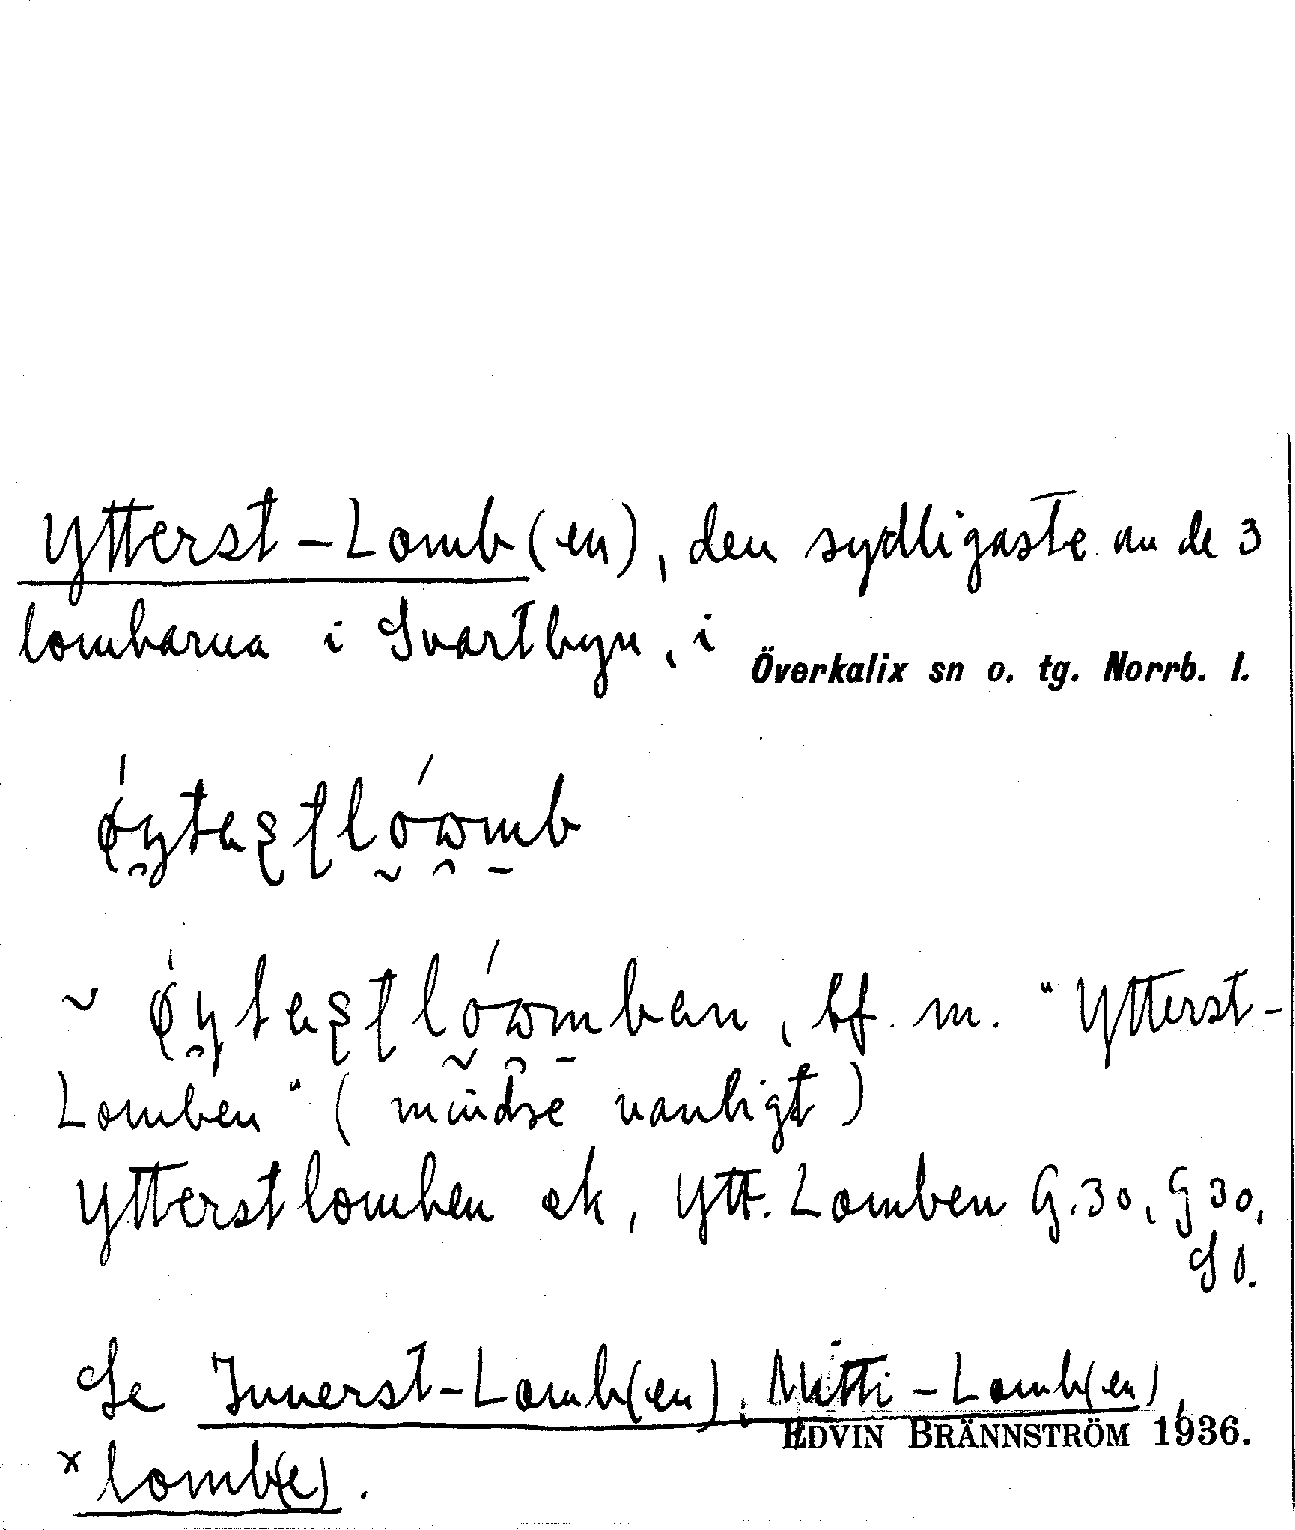 Ytterst-Lomb(en), den sydligaste av de 3
lombarna i Svartbyn, i Överkalix sn o. tg. Norrb. l.
~ , bf. m. "Ytterst-
Lomben" (mindre vanligt)
Ytterstlomben ek, Ytt. Lomben G.30, G 30,
Se Innerst-Lomb(en), Mitti-Lomb(en),
EDVIN BRÄNNSTRÖM 1936.
*lomb(e).